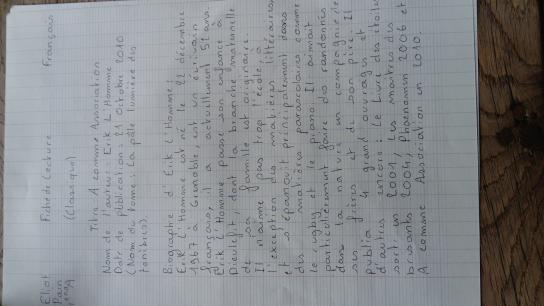 Eliot
Pain
Fiche de Lecture
Français
(Classique)
Titre: A comme Association
Nom de l'auteur: Erik L'Homme
Date de publication: 21 Octobre 2010
(Nom du tome: La pâle lumière des
ténèbres).
Biographie d'Erik L'Homme:
Erik L'Homme est né le 22 décembre
1967 à Grenoble, est un écrivain
français, il a actuellement 51 ans.
Erik L'Homme passe son enfance à
Dieulefit, dont la branche maternelle
de sa famille est originaire.
Il n'aime pas trop l'école, à
l'exception des matières littéraires
et s'épanouit principalement dans
des matières parascolaires comme
le rugby et le piano. Il aimait
particulièrement faire des randonnées
dans la nature en compagnie de
ses frères et de son père. Il
publia 4 grand ouvrages et
d'autres encore: Le Livre des étoiles
sorti en 2001, Les maîtres des
brisants 2004, Phænomen 2006 et
A comme Association en 2010.